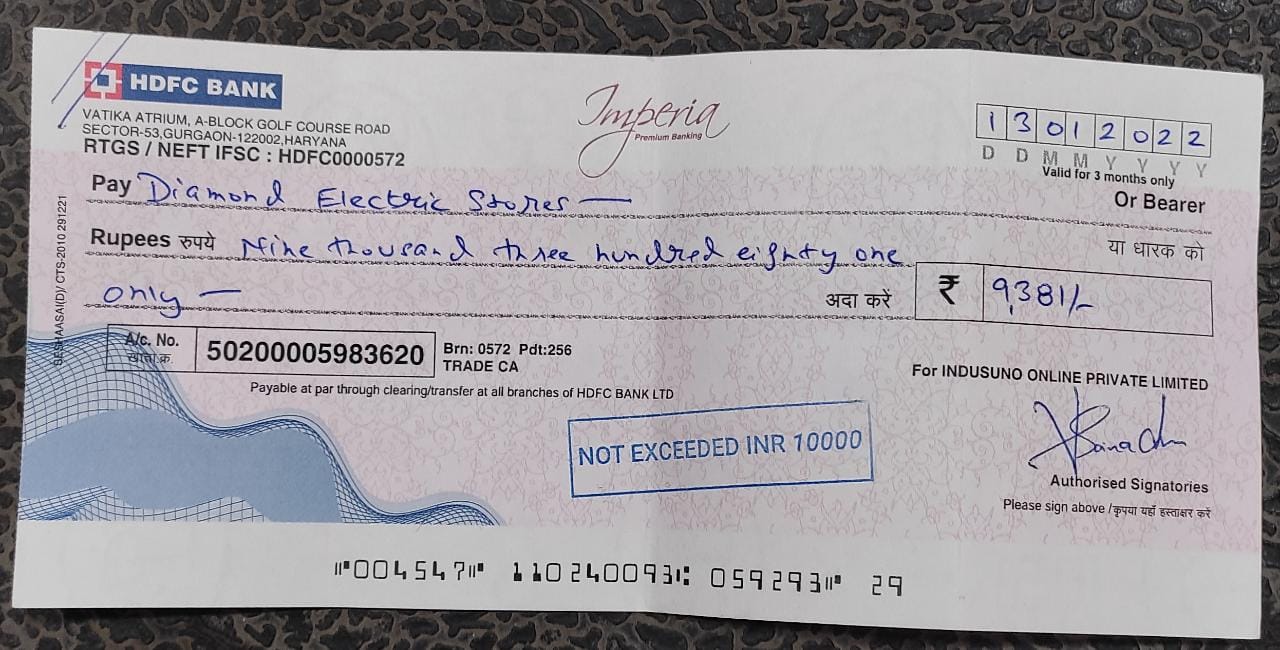 HDFC BANK
VATIKA ATRIUM, A-BLOCK GOLF COURSE ROAD
SECTOR-53,GURGAON-122002,HARYANA
RTGS / NEFT IFSC : HDFC0000572
Imperia
Premium Banking
13012022
D D M M Y Y Y Y
Valid for 3 months only
Pay Diamond Electric Stores —
Or Bearer
Rupees रुपये Nine thousand three hundred eighty one
या धारक को
only —
अदा करें
₹ 9,381/-
A/c. No.
खाता क्र.
50200005983620
Brn: 0572 Pdt:256
TRADE CA
Payable at par through clearing/transfer at all branches of HDFC BANK LTD
For INDUSUNO ONLINE PRIVATE LIMITED
NOT EXCEEDED INR 10000
Authorised Signatories
Please sign above /कृपया यहाँ हस्ताक्षर करें
⑈004547⑈ 110240093⑆ 059293⑈ 29
CTS-2010 291221